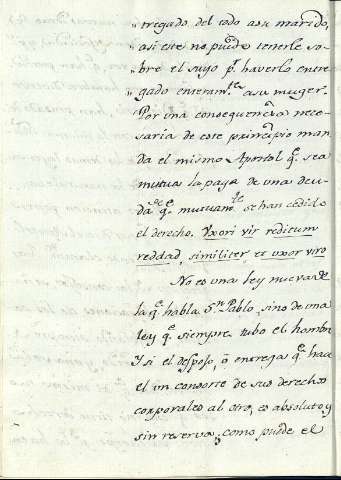 "tregado del todo a su marido,
"asi este no puede tenerle so-
"bre el suyo pr. haverlo entre
"gado enteramte. a su muger.
Por una consequencia nece-
saria de este principio man-
da el mismo Apostol qe. sea
mutua la paga de una deu-
da qe. mutuamte. se han cedido
el derecho. Uxori vir
reddad, similiter et uxor viro
No es una ley nueva de
la qe. habla Sn. Pablo, sino de una
ley qe. siempre tubo el hombre
Y si el despojo, ó entrega qe. hace
el un consorte de sus derechos
corporales al otro, es absoluto, y
sin reserva; como puede el